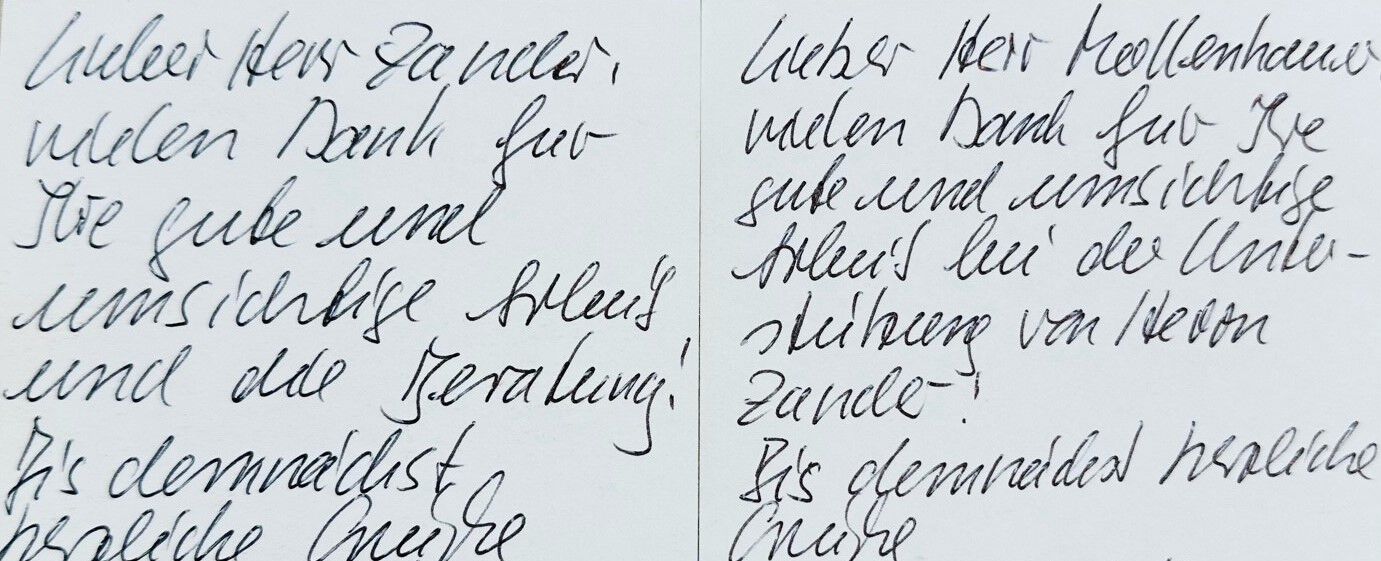 Lieber Herr Zander,
vielen Dank für
Ihre gute und
umsichtige Arbeit
und die Beratung!
Bis demnächst,
herzliche Grüße
Lieber Herr Mollenhauer
vielen Dank für Ihre
gute und umsichtige
Arbeit bei der Unter-
stützung von Herrn
Zander!
Bis demnächst herzliche
Grüße